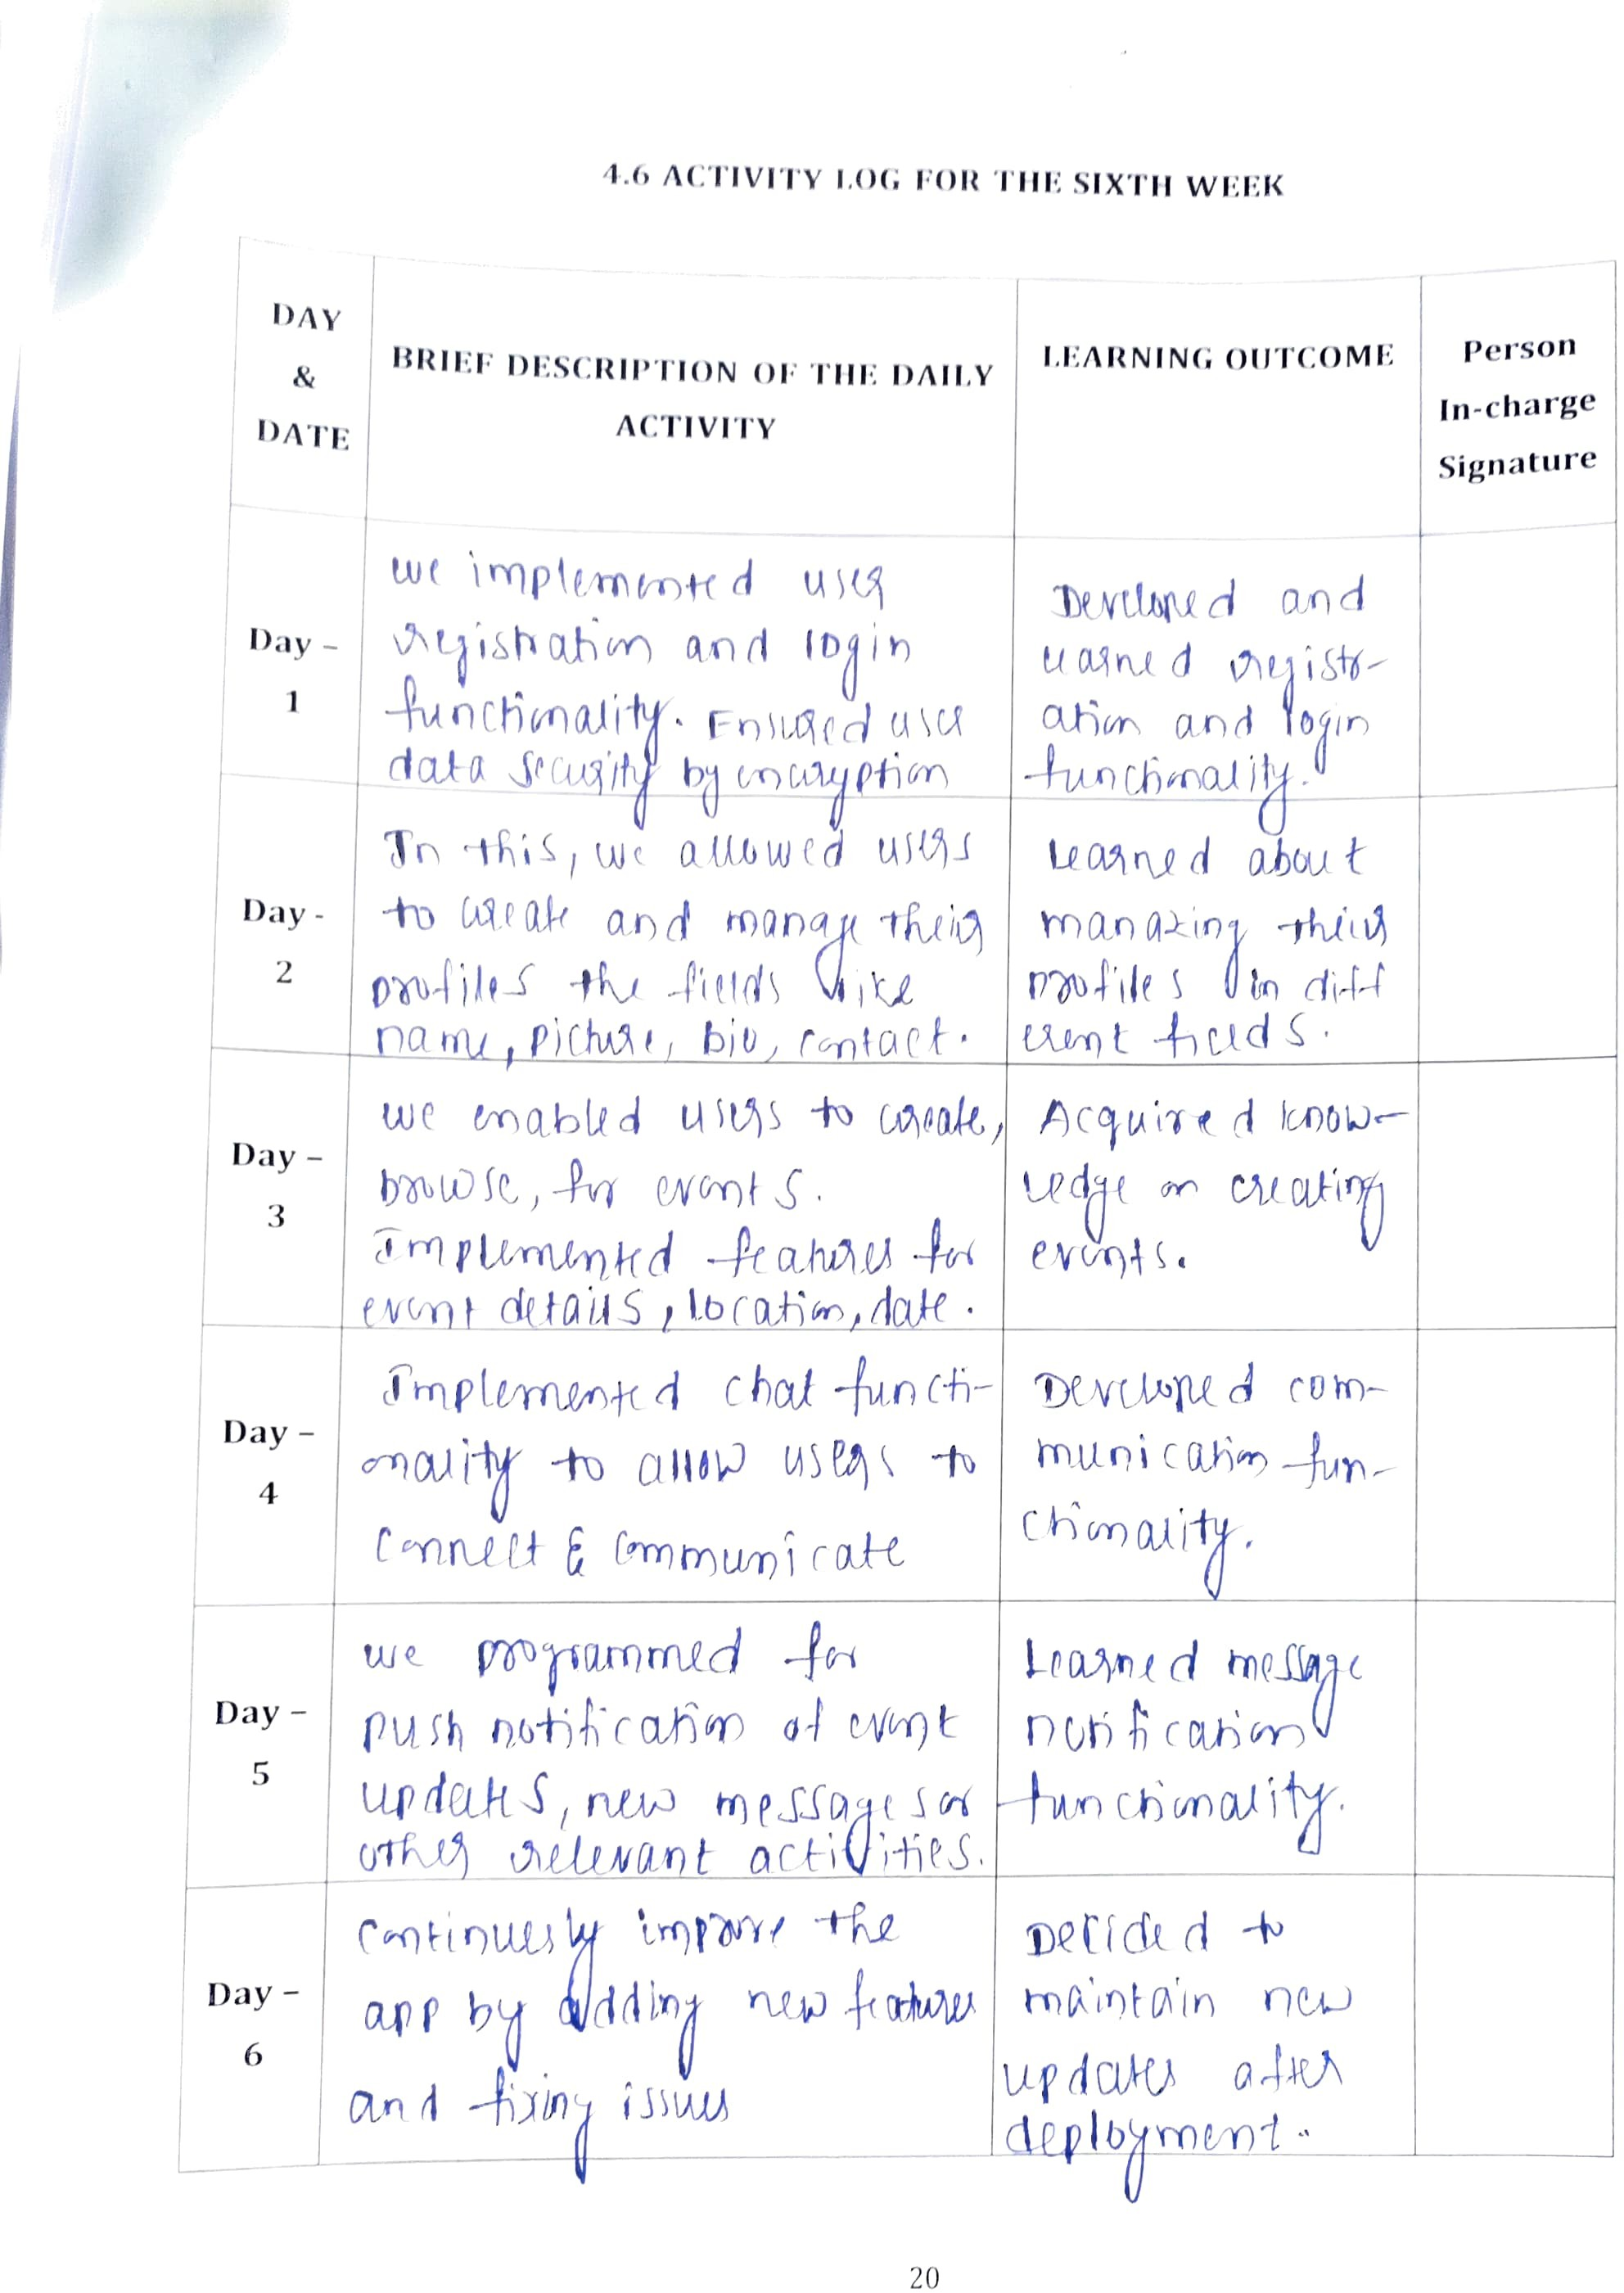 4.6 ACTIVITY LOG FOR THE SIXTH WEEK
DAY
&
DATE
BRIEF DESCRIPTION OF THE DAILY
ACTIVITY
LEARNING OUTCOME
Person
In-charge
Signature
Day –
1
we implemented user
registration and login
functionality. Ensured user
data security by encryption
Developed and
learned registr-
ation and login
functionality.
Day -
2
In this, we allowed users
to create and manage their
profiles the fields like
name, picture, bio, contact.
Learned about
managing their
profiles in diff
erent fields.
Day –
3
we enabled users to create,
browse, for events.
Implemented features for
event details, location, date.
Acquired know-
ledge on creating
events.
Day –
4
Implemented chat functi-
onality to allow users to
connect & communicate
Developed com-
munication fun-
ctionality.
Day –
5
we programmed for
push notification of event
updates, new messages or
other relevant activities.
Learned message
notification
functionality.
Day –
6
continuesly improve the
app by adding new features
and fixing issues
Decided to
maintain new
updates after
deployment.
20